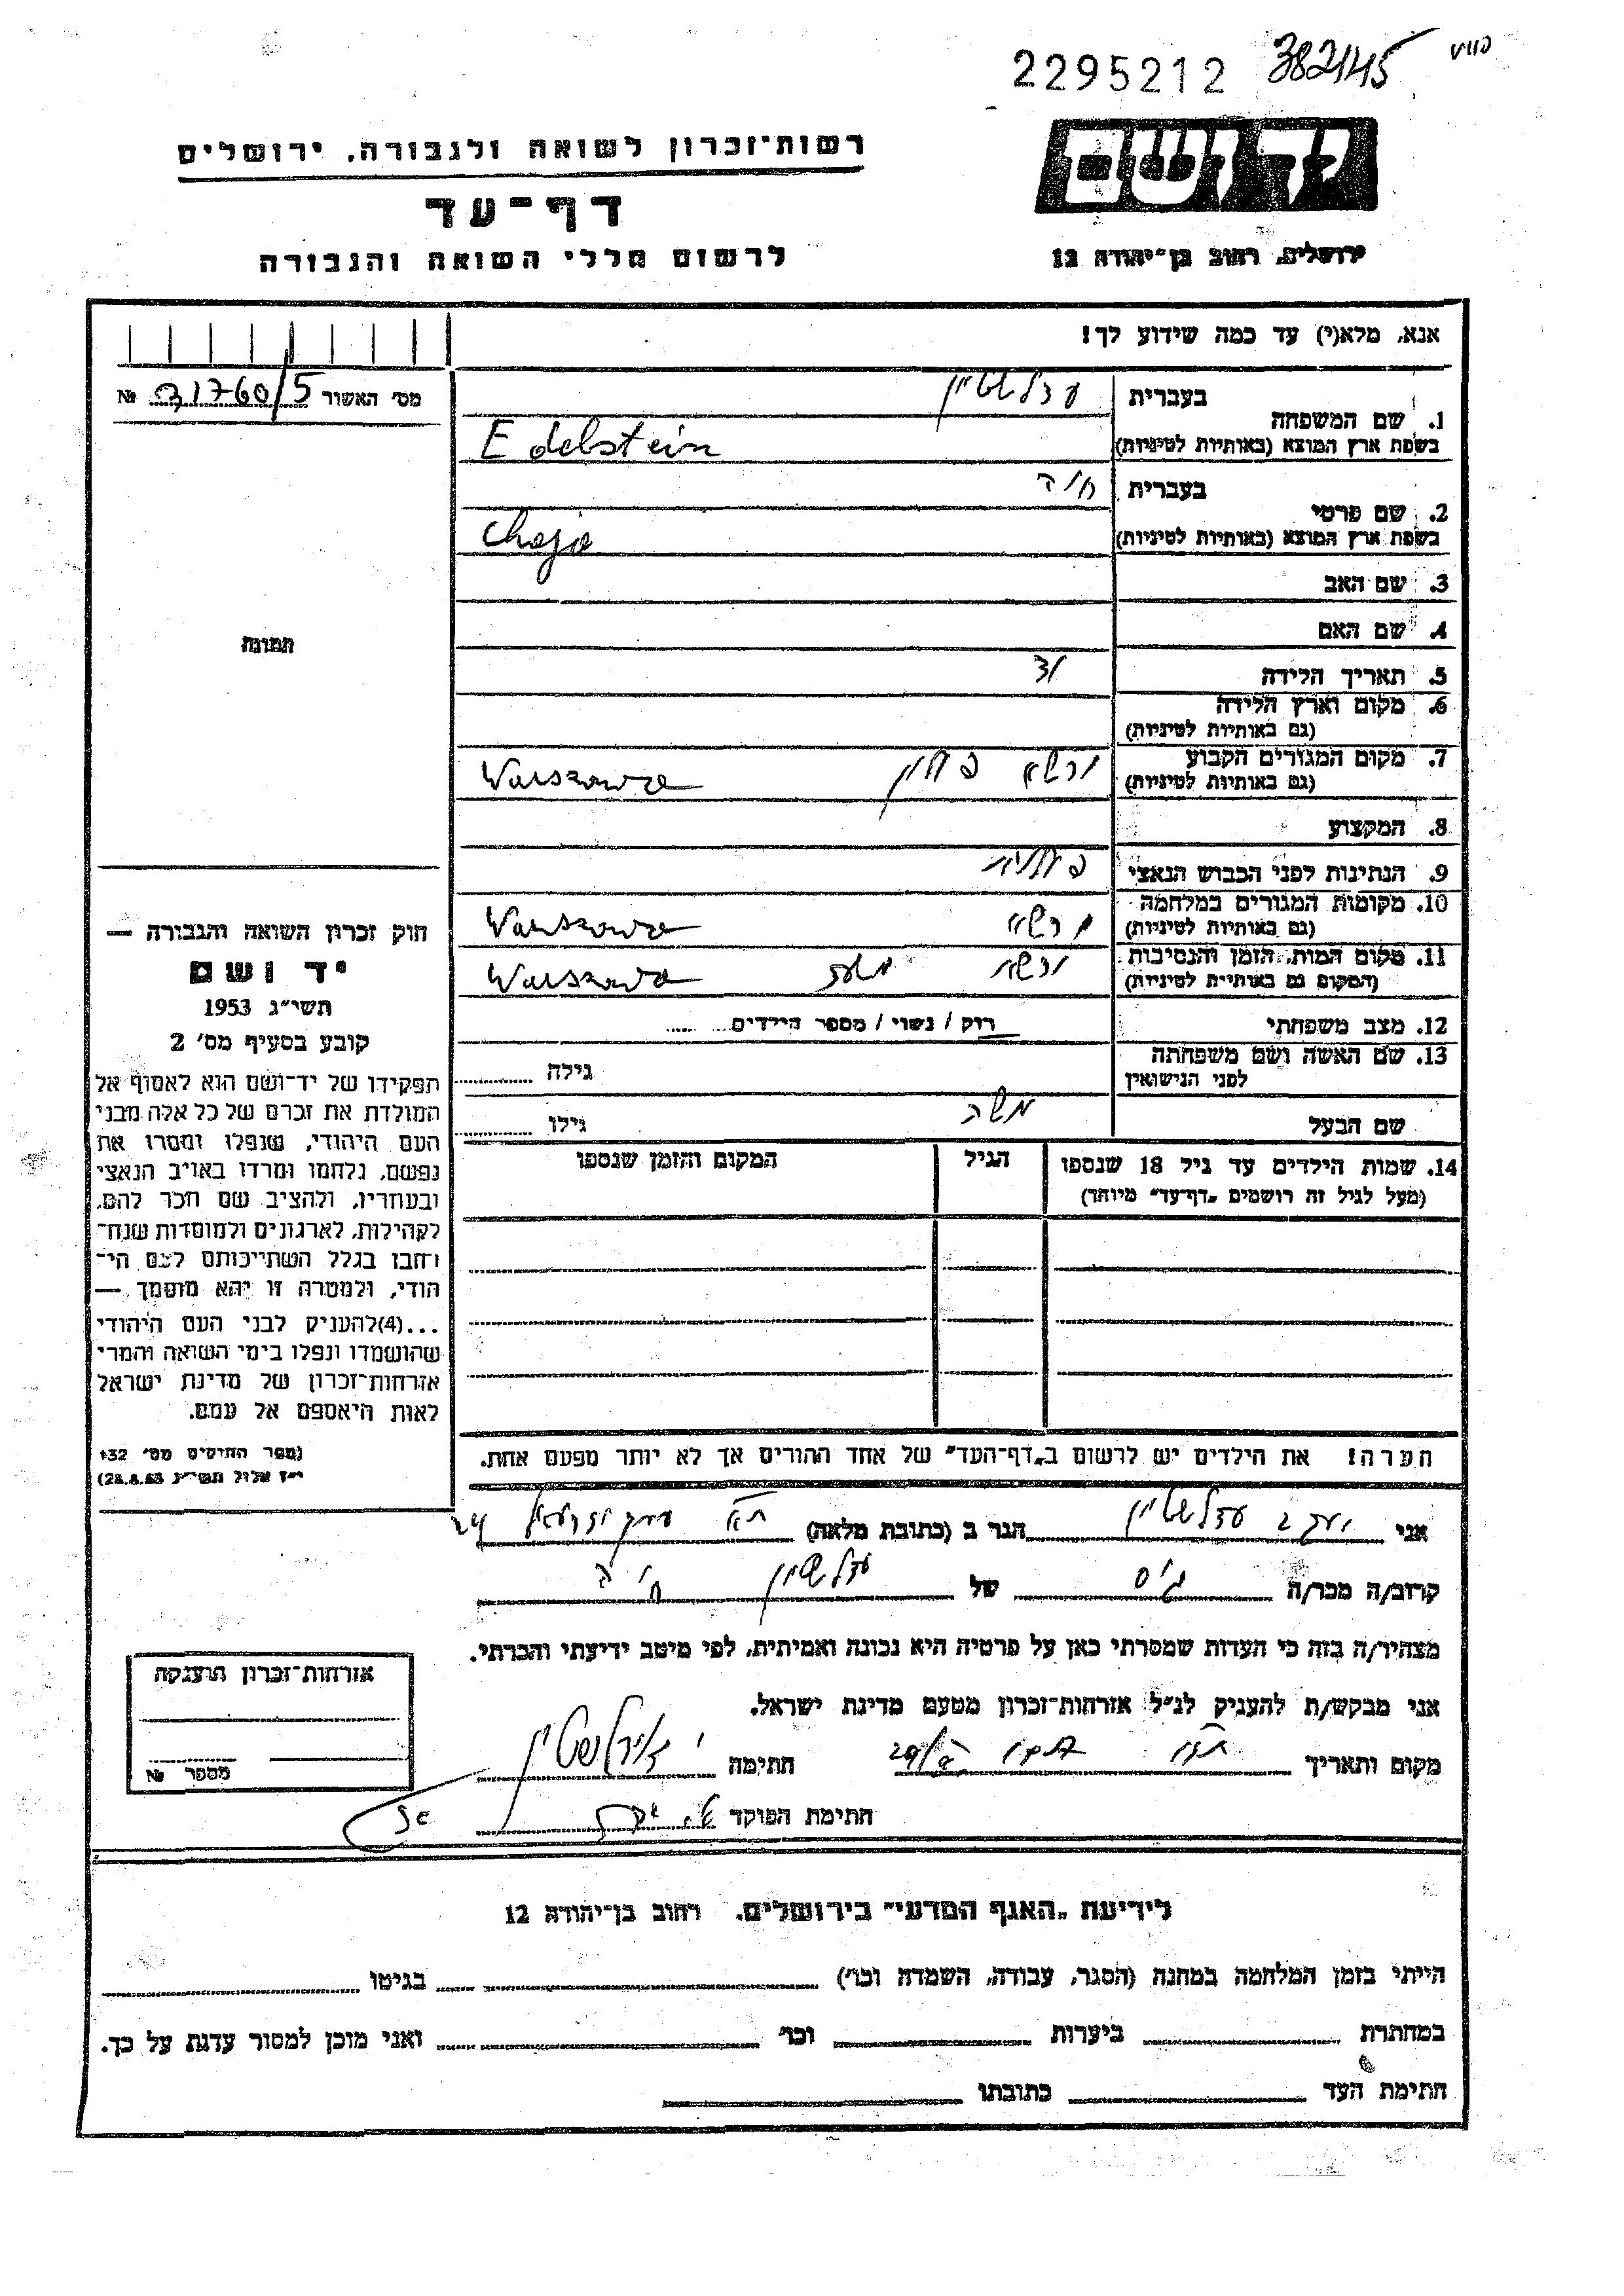 2295212 382/45
רשות־זכרון לשואה ולגבורה, ירושלים
דף־עד
לרשום חללי השואה והגבורה
יד ושם
ירושלים, רחוב בן־יהודה 12
אנא, מלא(י) עד כמה שידוע לך!
מס' האשור 31760/5 №
תמונה
1. שם המשפחה
בעברית עדלשטיין
בשפת ארץ המוצא (באותיות לטיניות) Edelstein
2. שם פרטי
בעברית חיה
בשפת ארץ המוצא (באותיות לטיניות) Chaja
3. שם האב
4. שם האם
5. תאריך הלידה
6. מקום וארץ הלידה
(גם באותיות לטיניות)
7. מקום המגורים הקבוע ורשא פולין Warszawa
(גם באותיות לטיניות)
8. המקצוע
9. הנתינות לפני הכבוש הנאצי פולנית
10. מקומות המגורים במלחמה ורשא Warszawa
(גם באותיות לטיניות)
11. מקום המות, הזמן והנסיבות ורשא Warszawa
(המקום גם באותיות לטיניות)
12. מצב משפחתי רוק / נשוי / מספר הילדים
13. שם האשה ושם משפחתה
לפני הנישואין גילה
שם הבעל משה גילו
14. שמות הילדים עד גיל 18 שנספו הגיל המקום והזמן שנספו
(מעל לגיל זה רושמים „דף־עד” מיוחד)
הערה! את הילדים יש לרשום ב„דף־העד” של אחד ההורים אך לא יותר מפעם אחת.
חוק זכרון השואה והגבורה —
יד ושם
תשי״ג 1953
קובע בסעיף מס' 2
תפקידו של יד־ושם הוא לאסוף אל
המולדת את זכרם של כל אלה מבני
העם היהודי, שנפלו ומסרו את
נפשם, נלחמו ומרדו באויב הנאצי
ובעוזריו, ולהציב שם וזכר להם,
לקהילות, לארגונים ולמוסדות שנח־
רבו בגלל השתייכותם לעם הי־
הודי, ולמטרה זו יהא מוסמך —
...(4)להעניק לבני העם היהודי
שהושמדו ונפלו בימי השואה והמרי
אזרחות־זכרון של מדינת ישראל
לאות היאספם אל עמם.
(ספר החוקים מס' 132
י״ז אלול תשי״ג 28.8.53)
אני יעקב עדלשטיין הגר ב (כתובת מלאה) ת״א עמק יזרעאל 24
קרוב/ה מכר/ה גיס של עדלשטיין חיה
מצהיר/ה בזה כי העדות שמסרתי כאן על פרטיה היא נכונה ואמיתית, לפי מיטב ידיעתי והכרתי.
אני מבקש/ת להעניק לנ״ל אזרחות־זכרון מטעם מדינת ישראל.
מקום ותאריך חתימה
חתימת הפוקד
אזרחות־זכרון הוענקה
מספר №
לידיעת „האגף המדעי” בירושלים, רחוב בן־יהודה 12
הייתי בזמן המלחמה במחנה (הסגר, עבודה, השמדה וכו') בגיטו
במחתרת ביערות וכו' ואני מוכן למסור עדות על כך.
חתימת העד כתובתו